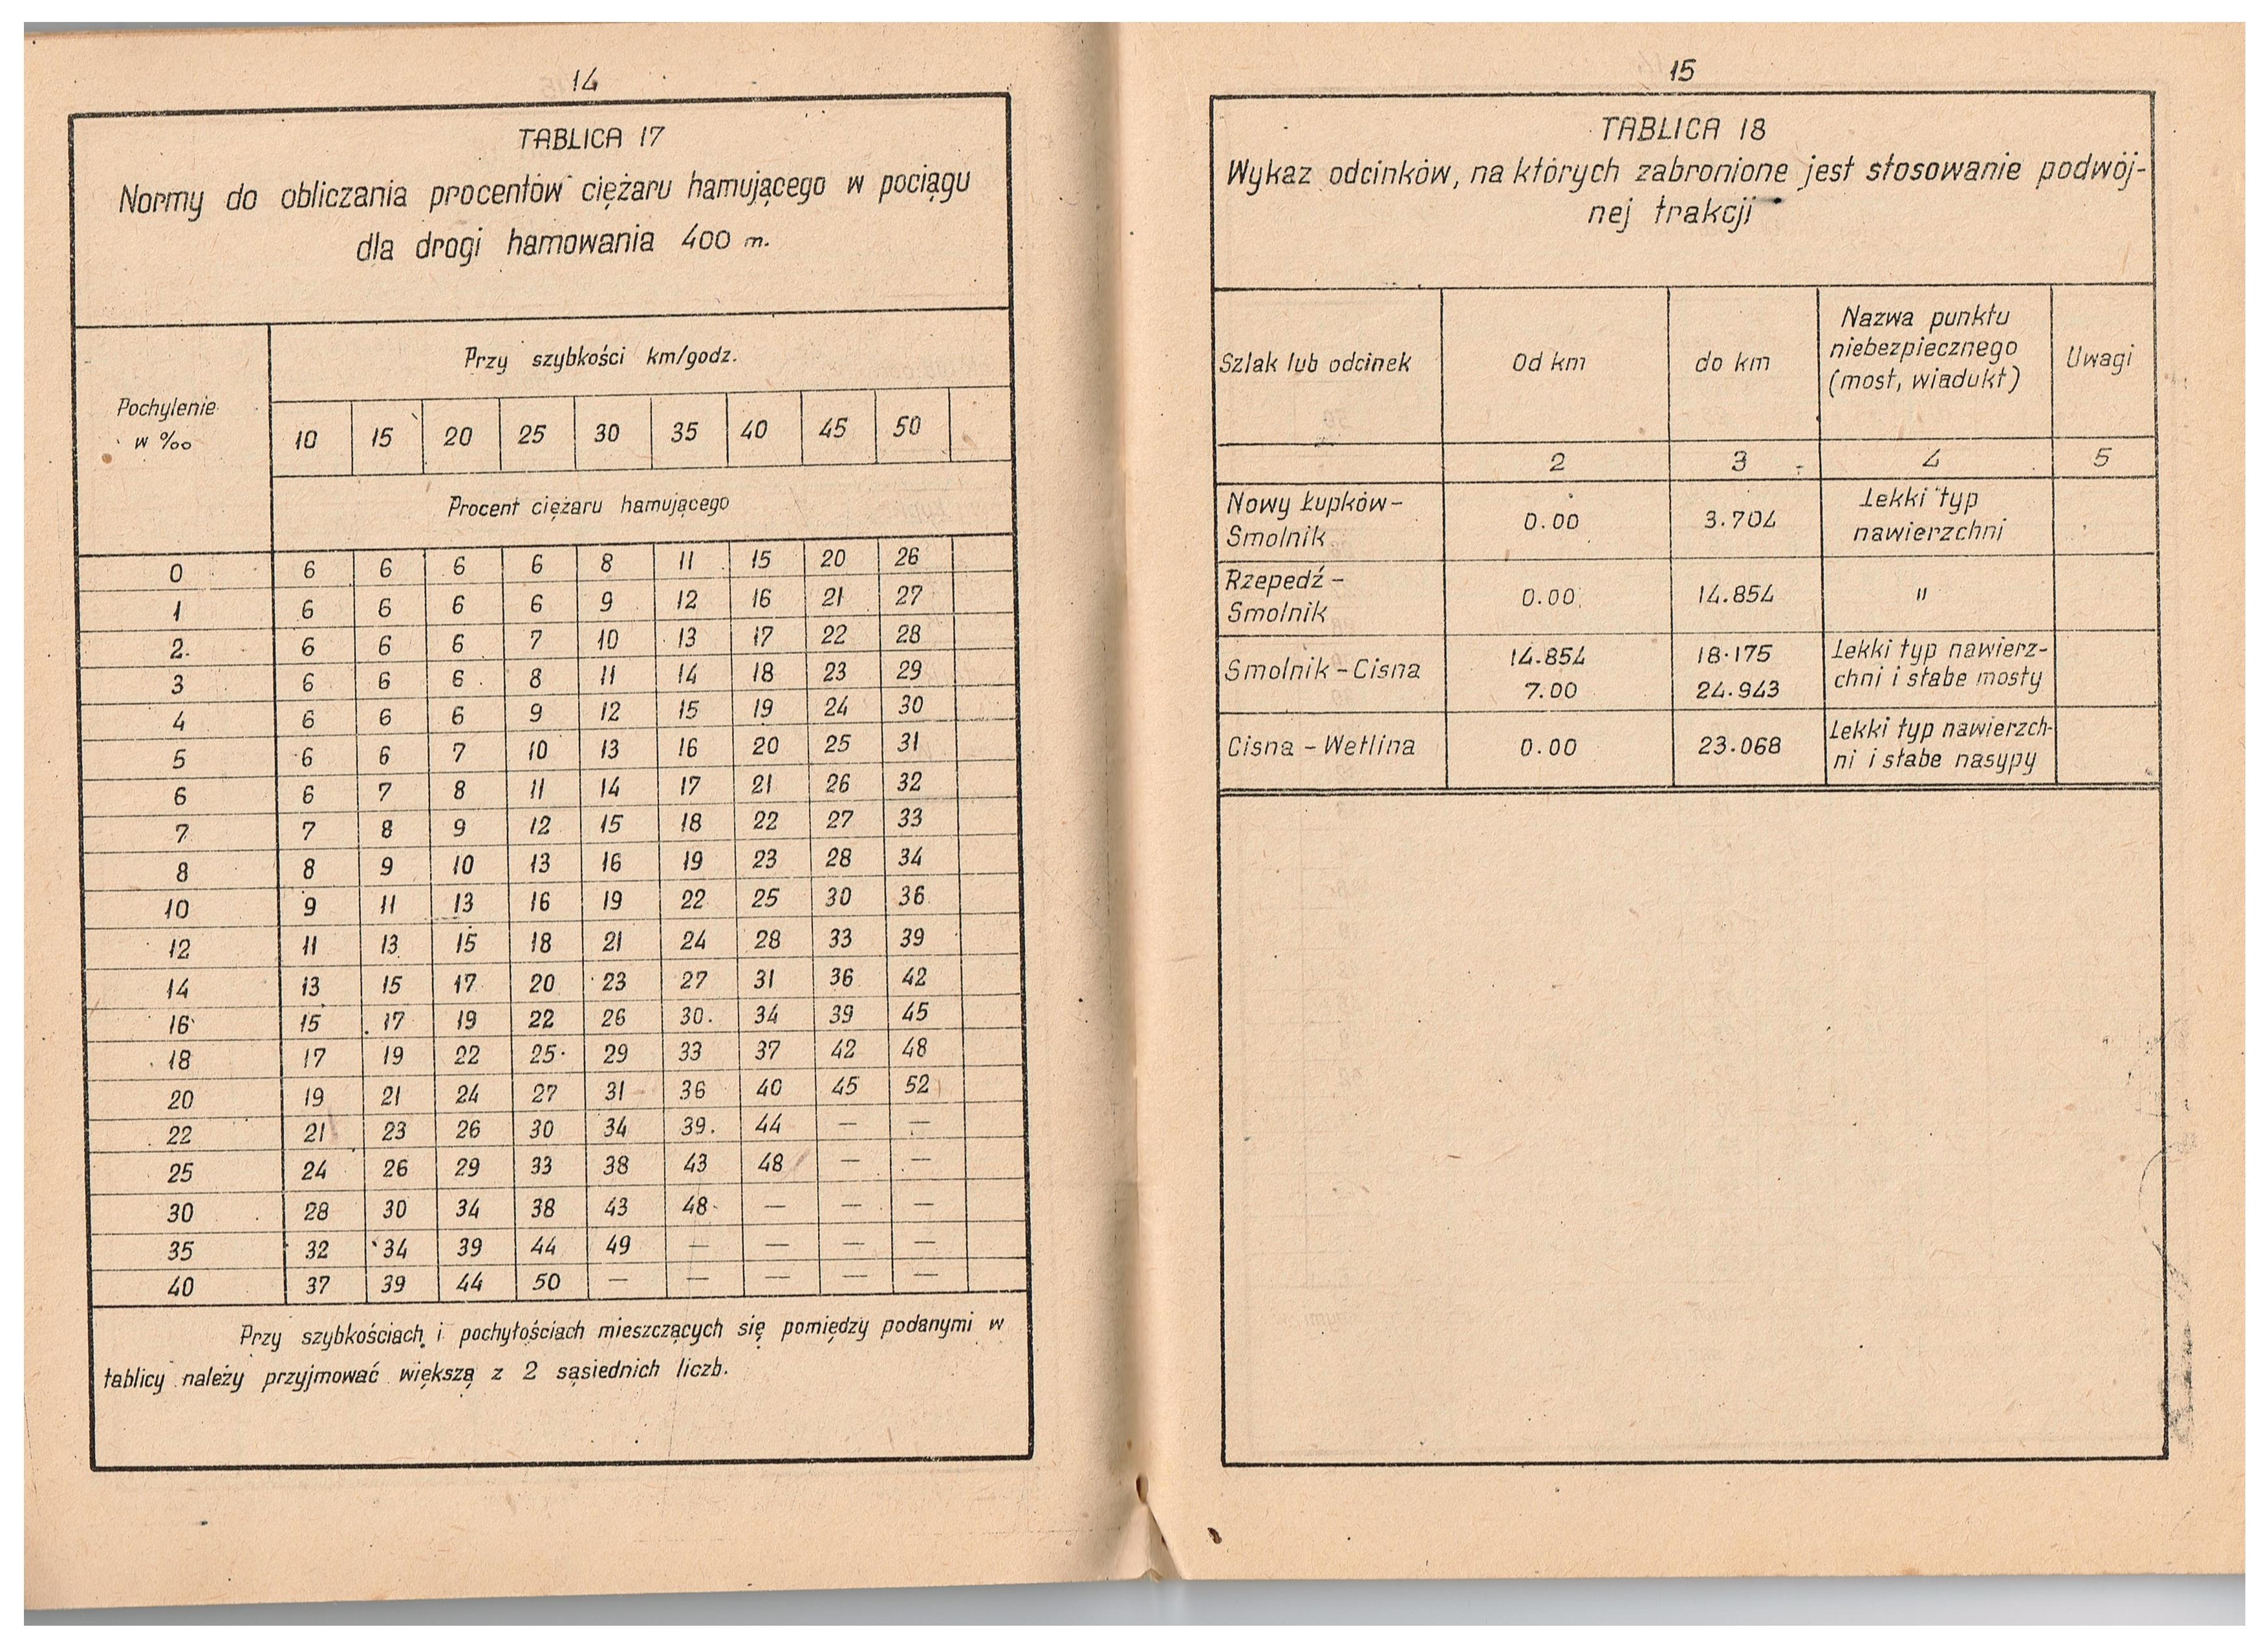 14
TABLICA 17
Normy do obliczania procentów ciężaru hamującego w pociągu
dla drogi hamowania 400 m.
Pochylenie
w ‰
Przy szybkości km/godz.
10 15 20 25 30 35 40 45 50
Procent ciężaru hamującego
0 6 6 6 6 8 11 15 20 26
1 6 6 6 6 9 12 16 21 27
2 6 6 6 7 10 13 17 22 28
3 6 6 6 8 11 14 18 23 29
4 6 6 6 9 12 15 19 24 30
5 6 6 7 10 13 16 20 25 31
6 6 7 8 11 14 17 21 26 32
7 7 8 9 12 15 18 22 27 33
8 8 9 10 13 16 19 23 28 34
10 9 11 13 16 19 22 25 30 36
12 11 13 15 18 21 24 28 33 39
14 13 15 17 20 23 27 31 36 42
16 15 17 19 22 26 30 34 39 45
18 17 19 22 25 29 33 37 42 48
20 19 21 24 27 31 36 40 45 52
22 21 23 26 30 34 39 44 — —
25 24 26 29 33 38 43 48 — —
30 28 30 34 38 43 48 — — —
35 32 34 39 44 49 — — — —
40 37 39 44 50 — — — — —
Przy szybkościach i pochyłościach mieszczących się pomiędzy podanymi w
tablicy należy przyjmować większą z 2 sąsiednich liczb.
15
TABLICA 18
Wykaz odcinków, na których zabronione jest stosowanie podwój-
nej trakcji
Szlak lub odcinek
Od km
do km
Nazwa punktu
niebezpiecznego
(most, wiadukt)
Uwagi
2 3 4 5
Nowy Łupków-
Smolnik
0.00
3.704
Lekki typ
nawierzchni
Rzepedź -
Smolnik
0.00
14.854
"
Smolnik - Cisna
14.854
7.00
18.175
24.943
Lekki typ nawierz-
chni i słabe mosty
Cisna - Wetlina
0.00
23.068
Lekki typ nawierzch-
ni i słabe nasypy